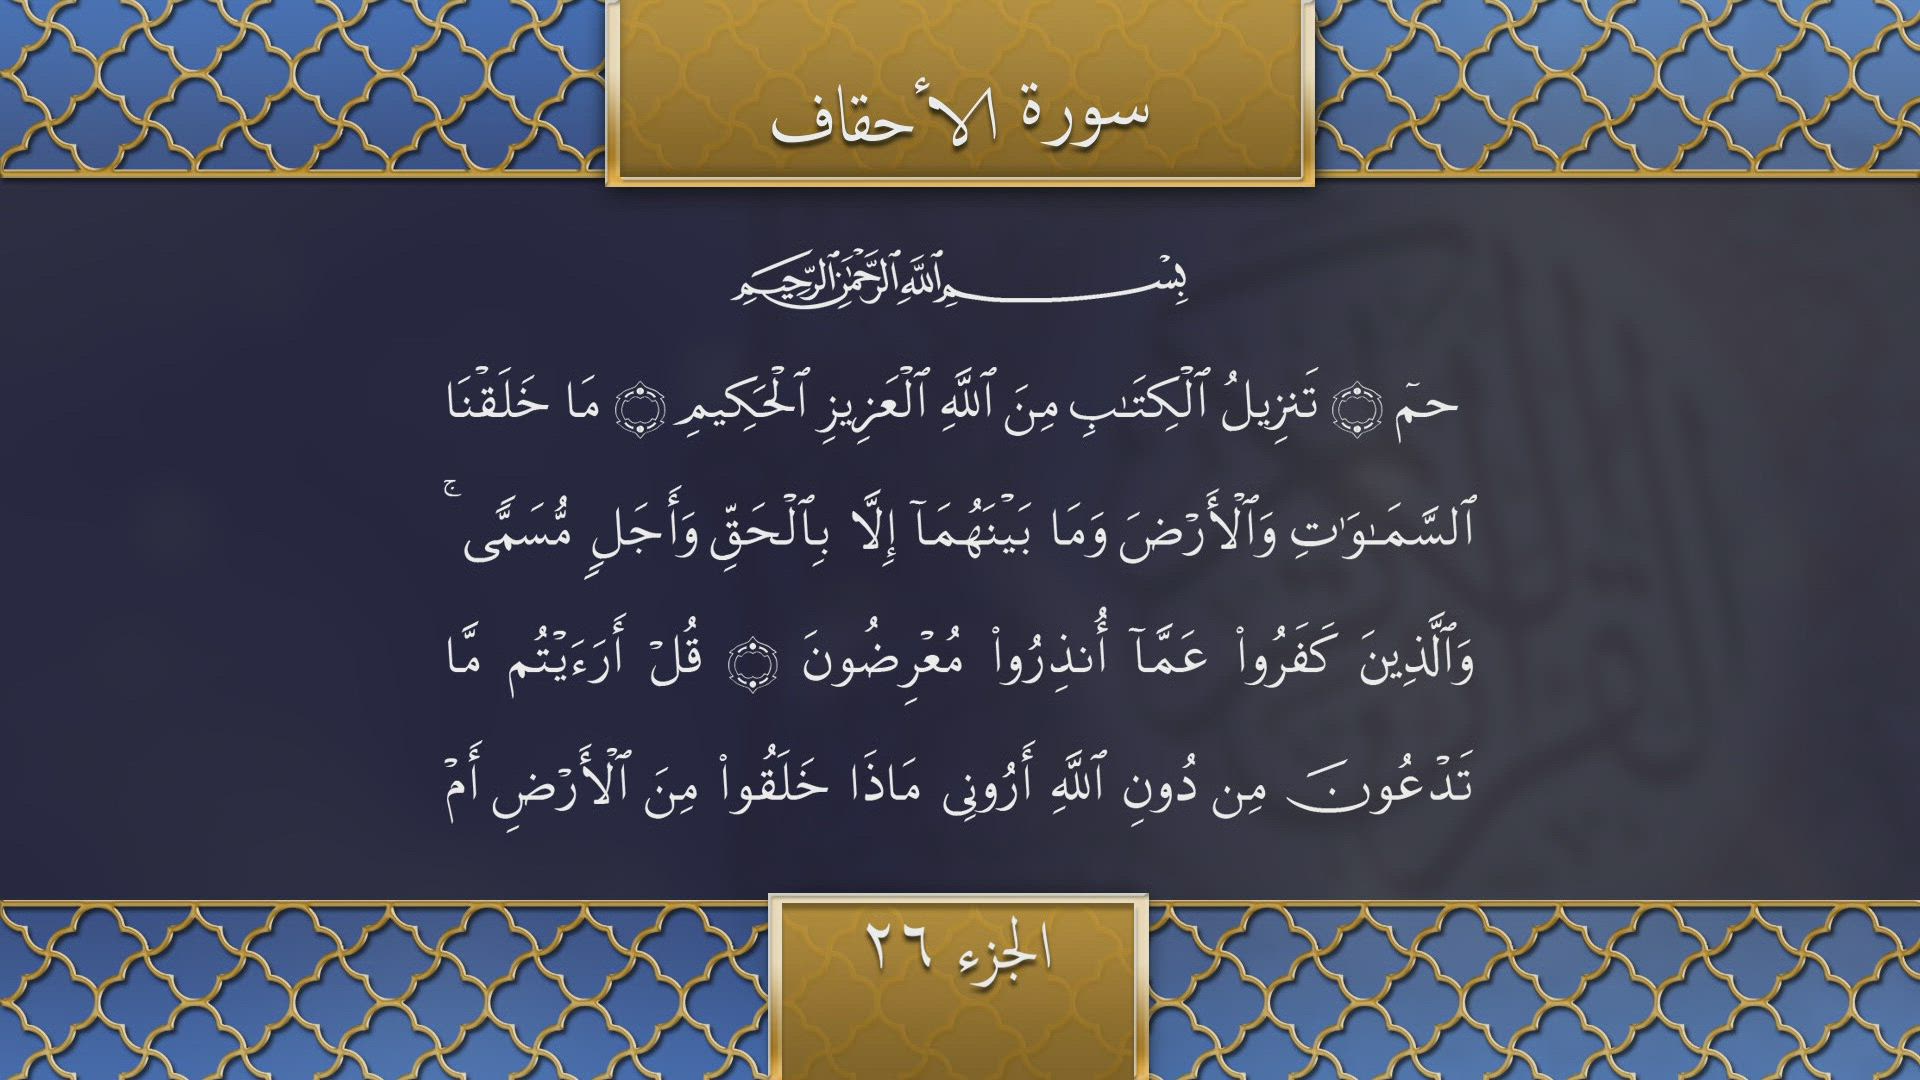 سورة الأحقاف
بِسْمِ ٱللَّهِ ٱلرَّحْمَٰنِ ٱلرَّحِيمِ
حمٓ ۝ تَنزِيلُ ٱلْكِتَـٰبِ مِنَ ٱللَّهِ ٱلْعَزِيزِ ٱلْحَكِيمِ ۝ مَا خَلَقْنَا
ٱلسَّمَـٰوَٰتِ وَٱلْأَرْضَ وَمَا بَيْنَهُمَآ إِلَّا بِٱلْحَقِّ وَأَجَلٍ مُّسَمًّى ۚ
وَٱلَّذِينَ كَفَرُوا۟ عَمَّآ أُنذِرُوا۟ مُعْرِضُونَ ۝ قُلْ أَرَءَيْتُم مَّا
تَدْعُونَ مِن دُونِ ٱللَّهِ أَرُونِى مَاذَا خَلَقُوا۟ مِنَ ٱلْأَرْضِ أَمْ
الجزء ٢٦